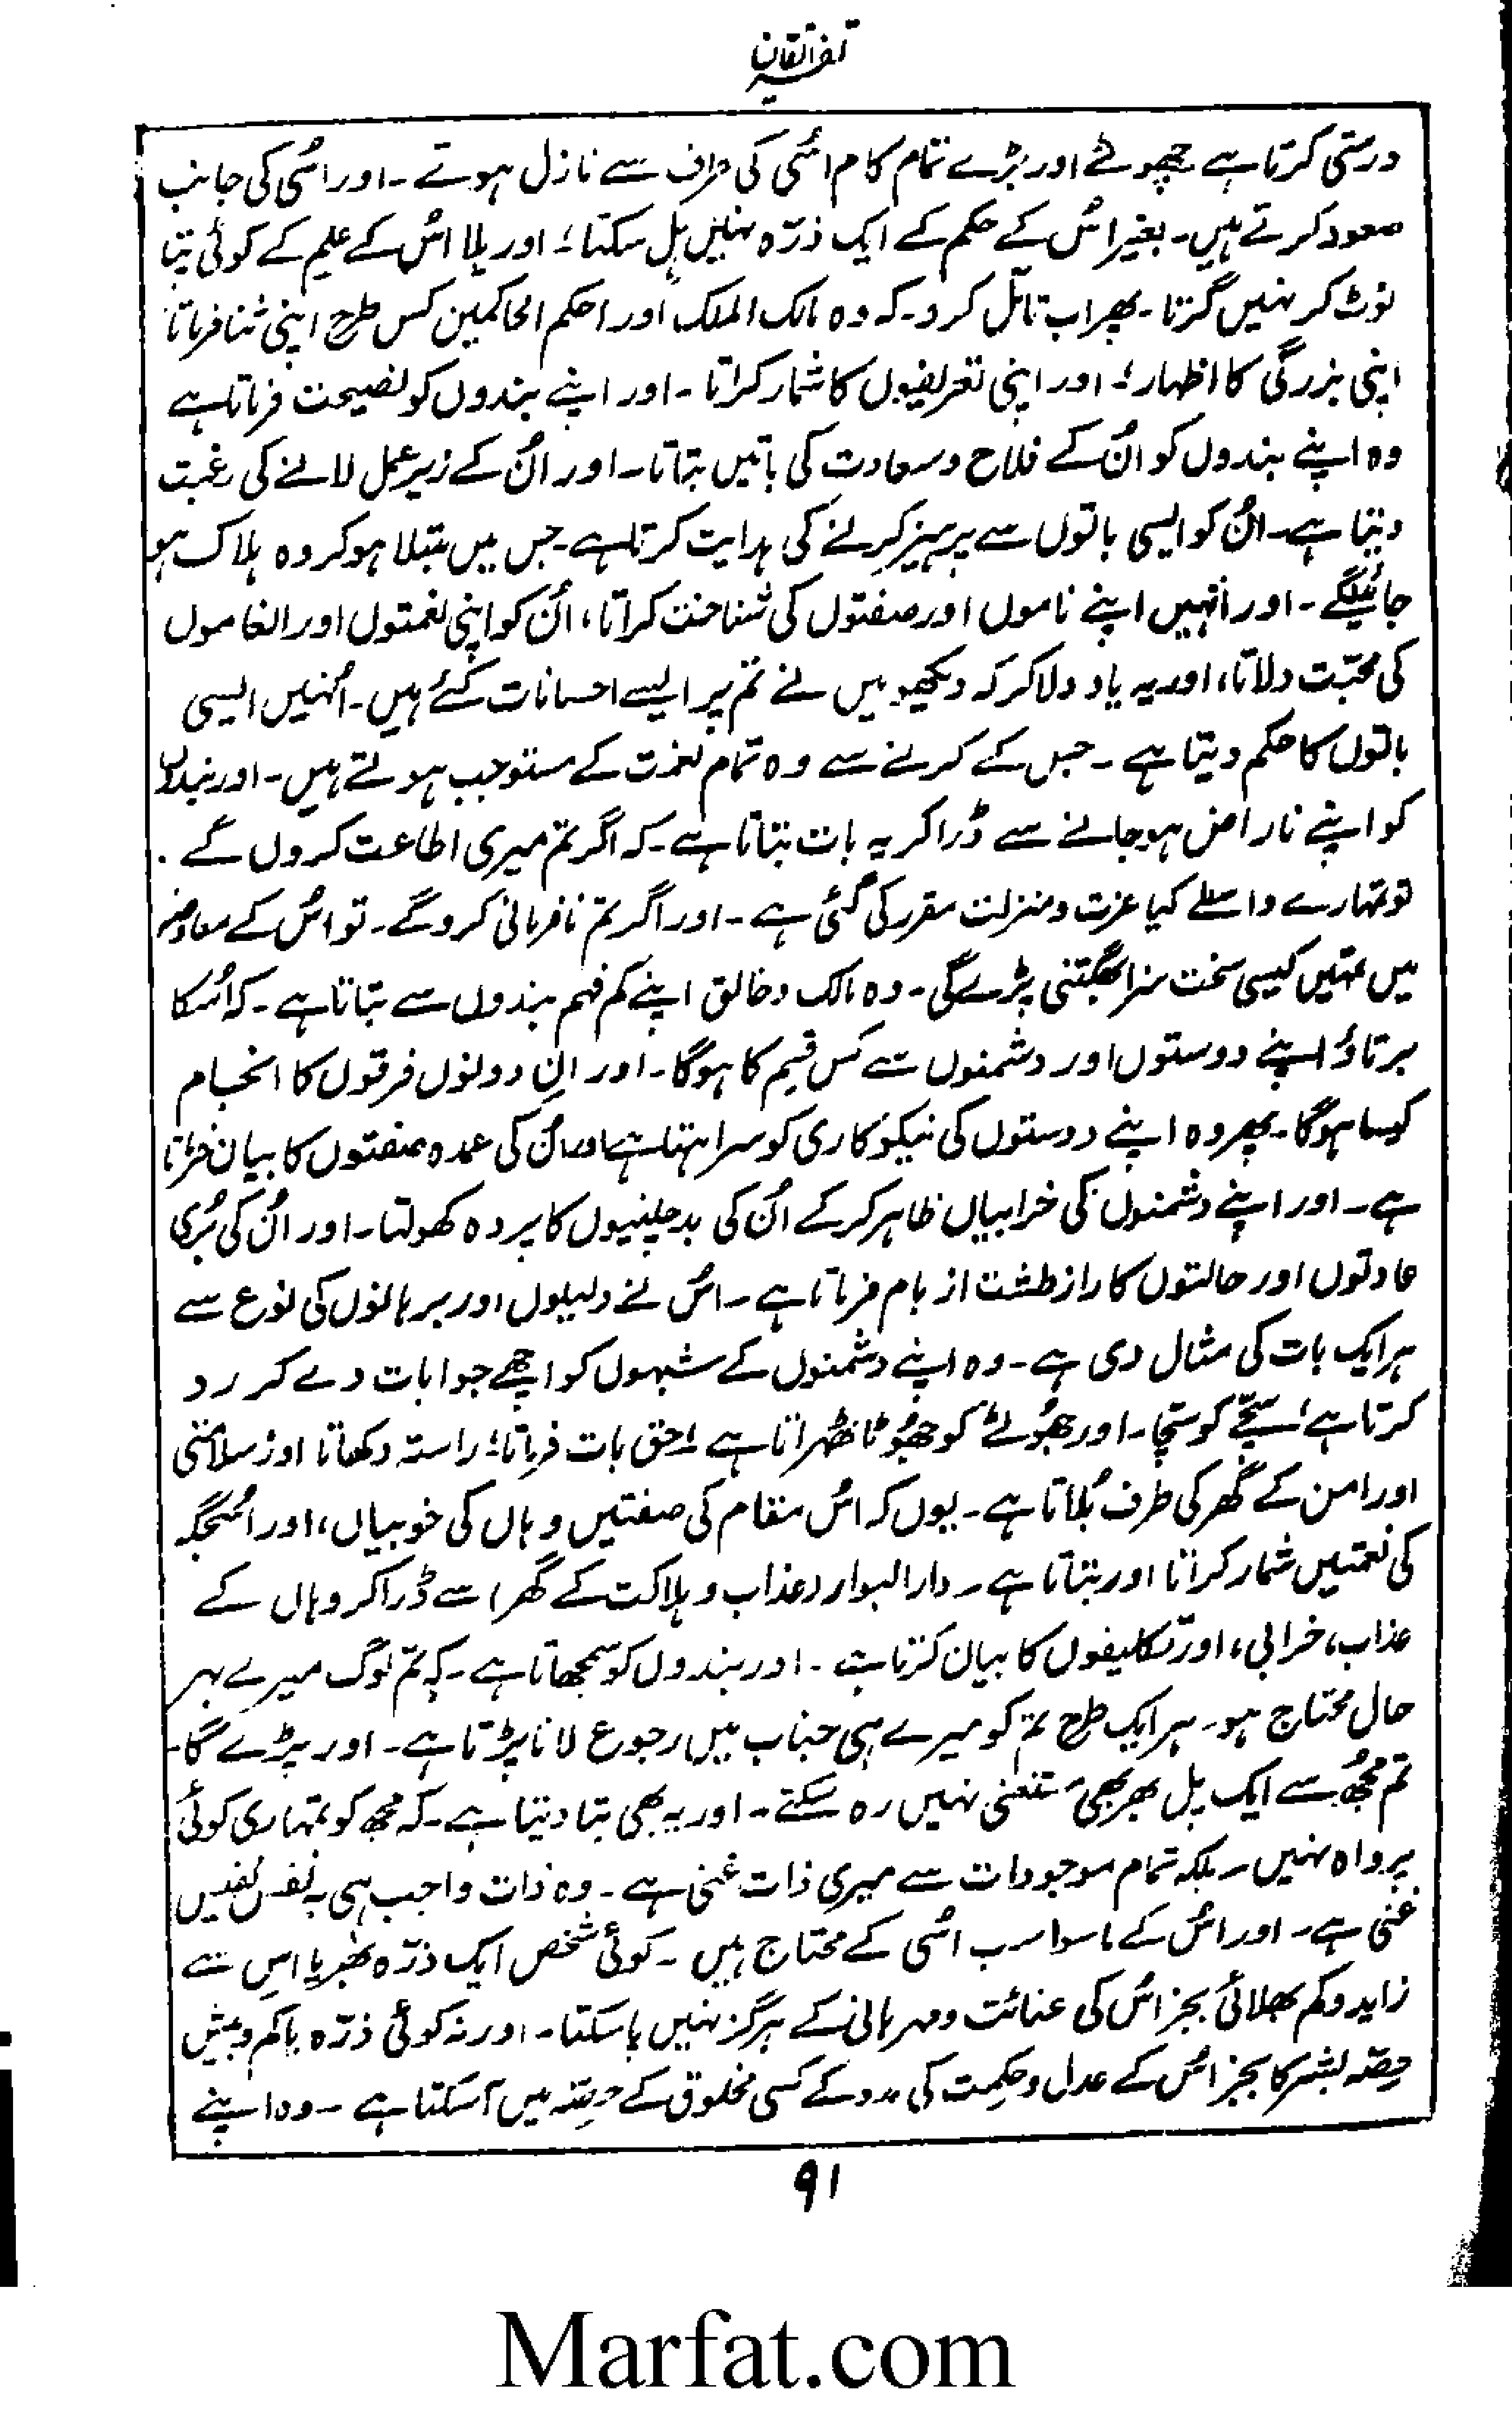 تفسیر اتقان
درستی کرتا ہے چھوٹے اور بڑے تمام کام اسُی کی طرف سے نازل ہوتے ۔ اور اسُی کی جانب
صعود کرتے ہیں۔ بغیر اسُ کے حکم کے ایک ذرّہ نہیں ہل سکتا؛ اور بلا اسُ کے علم کے کوئی پتا
ٹوٹ کر نہیں گرتا ۔ پھر اب تامّل کرو۔ کہ وہ مالک الملک اور احکم الحاکمین کس طرح اپنی ثنا فرماتا
اپنی بزرگی کا اظہار؛ اور اپنی تعریفوں کا شمار کراتا ۔ اور اپنے بندوں کو نصیحت فرماتا ہے
وہ اپنے بندوں کو انُ کے فلاح و سعادت کی باتیں بتاتا ۔ اور انُ کے زیر عمل لانے کی رغبت
دیتا ہے۔ انُ کو ایسی باتوں سے پرہیز کرنے کی ہدایت کرتا ہے۔ جس میں مبتلا ہو کر وہ ہلاک ہو
جائینگے ۔ اور انہیں اپنے ناموں اور صفتوں کی شناخت کراتا، انُ کو اپنی نعمتوں اور انعاموں
کی محبّت دلاتا، اور یہ یاد دلا کر کہ دیکھو میں نے تم پر ایسے احسانات کئے ہیں۔ اُنہیں ایسی
باتوں کا حکم دیتا ہے ۔ جس کے کرنے سے وہ تمام نعمت کے مستوجب ہوتے ہیں۔ اور بندوں
کو اپنے ناراض ہو جانے سے ڈرا کر یہ بات بتاتا ہے۔ کہ اگر تم میری اطاعت کروں گے .
تو تمہارے واسطے کیا عزت و منزلت مقرر کی گئی ہے ۔ اور اگر تم نافرمانی کرو گے ۔ تو اسُ کے معاوضہ
میں تمہیں کیسی سخت سزا بھگتنی پڑے گی ۔ وہ مالک و خالق اپنے کم فہم بندوں سے بتاتا ہے ۔ کہ اُسکا
برتاؤ اپنے دوستوں اور دشمنوں سے کس قسِم کا ہوگا ۔ اور انِ دونوں فرقوں کا انجام
کیسا ہوگا ۔ پھر وہ اپنے دوستوں کی نیکو کاری کو سراہتا ہے اور انُ کی عمدہ صفتوں کا بیان فرماتا
ہے ۔ اور اپنے دشمنوں کی خرابیاں ظاہر کر کے انُ کی بدچلنیوں کا پردہ کھولتا ۔ اور انُ کی بُری
عادتوں اور حالتوں کا راز طشت از بام فرماتا ہے ۔ اسُ نے دلیلوں اور برہانوں کی نوع سے
ہر ایک بات کی مثال دی ہے ۔ وہ اپنے دشمنوں کے شبہوں کو اچھے جوابات دے کر رد
کرتا ہے؛ سچّے کو سچّا ۔ اور جھُوٹے کو جھُوٹا ٹھہراتا ہے؛ حق بات فرماتا؛ راستہ دکھاتا اور سلامتی
اور امن کے گھر کی طرف بُلاتا ہے ۔ یوں کہ اسُ مقام کی صفتیں وہاں کی خوبیاں، اور اسُجگہ
کی نعمتیں شمار کراتا اور بتاتا ہے ۔ دار البوار (عذاب و ہلاکت کے گھر) سے ڈرا کر وہاں کے
عذاب، خرابی، اور تکلیفوں کا بیان کرتا ہے ۔ اور بندوں کو سمجھاتا ہے ۔ کہ تم لوگ میرے بہر
حال محتاج ہو ۔ ہر ایک طرح تم کو میرے ہی جناب میں رجوع لانا پڑتا ہے ۔ اور پڑے گا ۔
تم مجھُ سے ایک پل بھر بھی مستغنی نہیں رہ سکتے ۔ اور یہ بھی بتا دیتا ہے ۔ کہ مجھ کو تمہاری کوئی
پرواہ نہیں ۔ بلکہ تمام موجودات سے میری ذات غنی ہے ۔ وہ ذات واجب ہی بہ نفس نفیس
غنی ہے ۔ اور اسُ کے ماسوا سب اسُی کے محتاج ہیں ۔ کوئی شخص ایک ذرّہ بھر یا اسِ سے
زاید و کم بھلائی بجز اسُ کی عنائت و مہربانی کے ہرگز نہیں پا سکتا ۔ اور نہ کوئی ذرّہ یا کم و بیش
حِصّہ بشر کا بجز اسُ کے عدل و حکِمت کی مدد کے کسی مخلوق کے حِصّہ میں آ سکتا ہے ۔ وہ اپنے
۹۱
Marfat.com